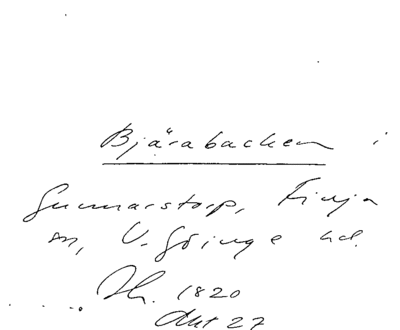 Bjärabacken i
Gunnarstorp, Finja
sn, V. Göinge hd.
1820
Akt 27